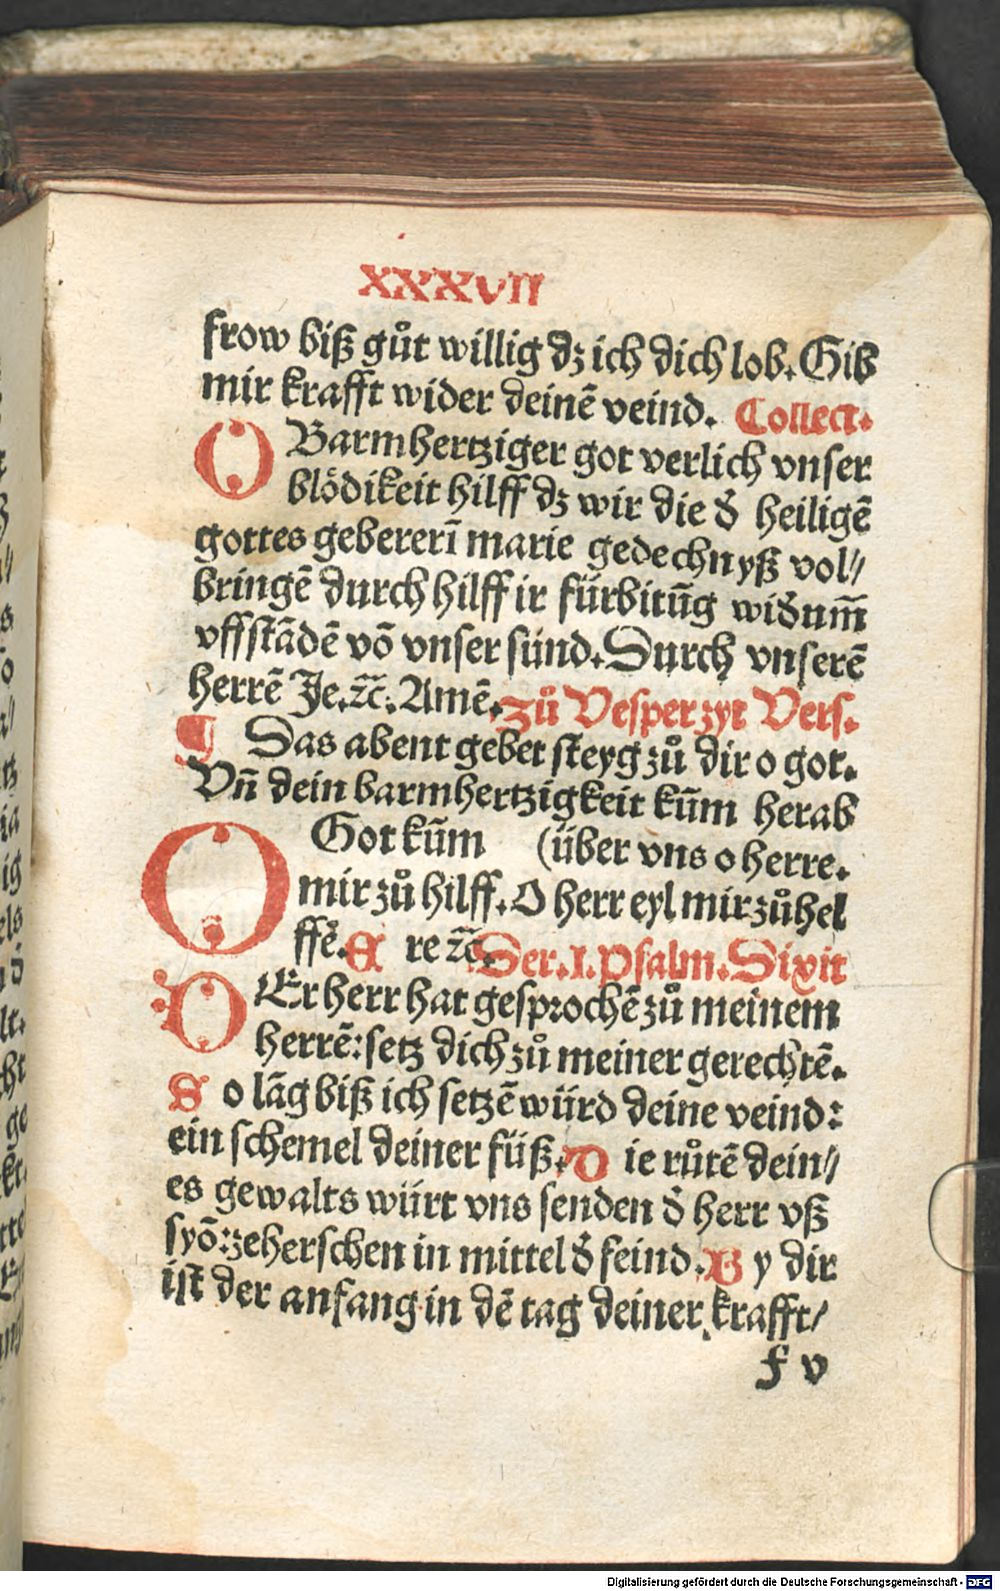 XXXVII
frow biß gůt willig dz ich dich lob. Gib
mir krafft wider deinē veind. Collect.
O Barmhertziger got verlich vnser
blödikeit hilff dz wir die d̄ heiligē
gottes gebererī marie gedechnyß vol//
bringē durch hilff ir fürbitūg wid̄um̄
vffstādē vō vnser sünd. Durch vnserē
herrē Je. ⁊c̄. Amē. Zů Vesper zyt Vers.
¶ Das abent gebet steyg zů dir o got.
Vn̄ dein barmhertzigkeit kūm herab
O Got kūm (über vns o herre.
mir zů hilff. O herr eyl mir zů hel
ffē. E re ⁊c̄. Der. I. Psalm. Dixit
D Er herr hat gesprochē zů meinem
herrē: setz dich zů meiner gerechtē.
S o lāg biß ich setzē würd deine veind:
ein schemel deiner füß. D ie růtē dein//
es gewalts würt vns senden d̄ herr vß
syō: zeherschen in mittel d̄ feind. B y dir
ist der anfang in dē tag deiner krafft/
f v
Digitalisierung gefördert durch die Deutsche Forschungsgemeinschaft - DFG